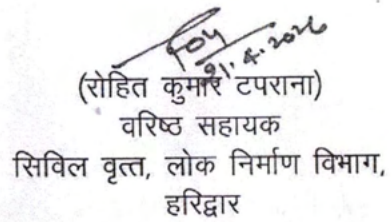 21.4.2026
(रोहित कुमार टपराना)
वरिष्ठ सहायक
सिविल वृत्त, लोक निर्माण विभाग,
हरिद्वार